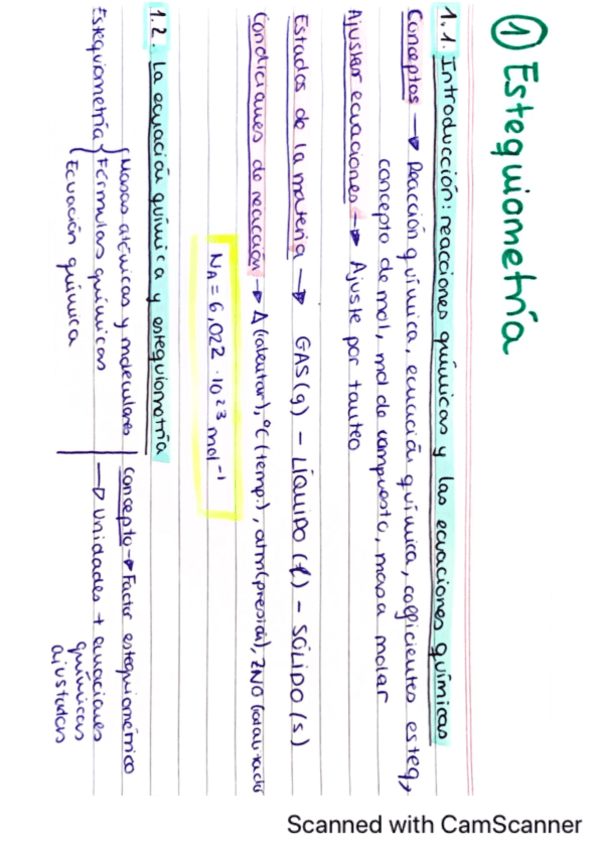 ① Estequiometría
1.1. Introducción: reacciones químicas y las ecuaciones químicas
Conceptos → Reacción química, ecuación química, coeficientes esteq,
concepto de mol, mol de compuesto, masa molar
Ajustar ecuaciones → Ajuste por tanteo
Estados de la materia → GAS (g) - LÍQUIDO (l) - SÓLIDO (s)
Condiciones de reacción → Δ (calentar), ºC (temp.), atm (presión), ZNO (catalizador
NA = 6,022 · 10²³ mol⁻¹
1.2. La ecuación química y estequiometría
Estequiometría { Masas atómicas y moleculares
Fórmulas químicas
Ecuación química
Concepto → Factor estequiométrico
→ Unidades + ecuaciones
químicas
ajustadas
Scanned with CamScanner